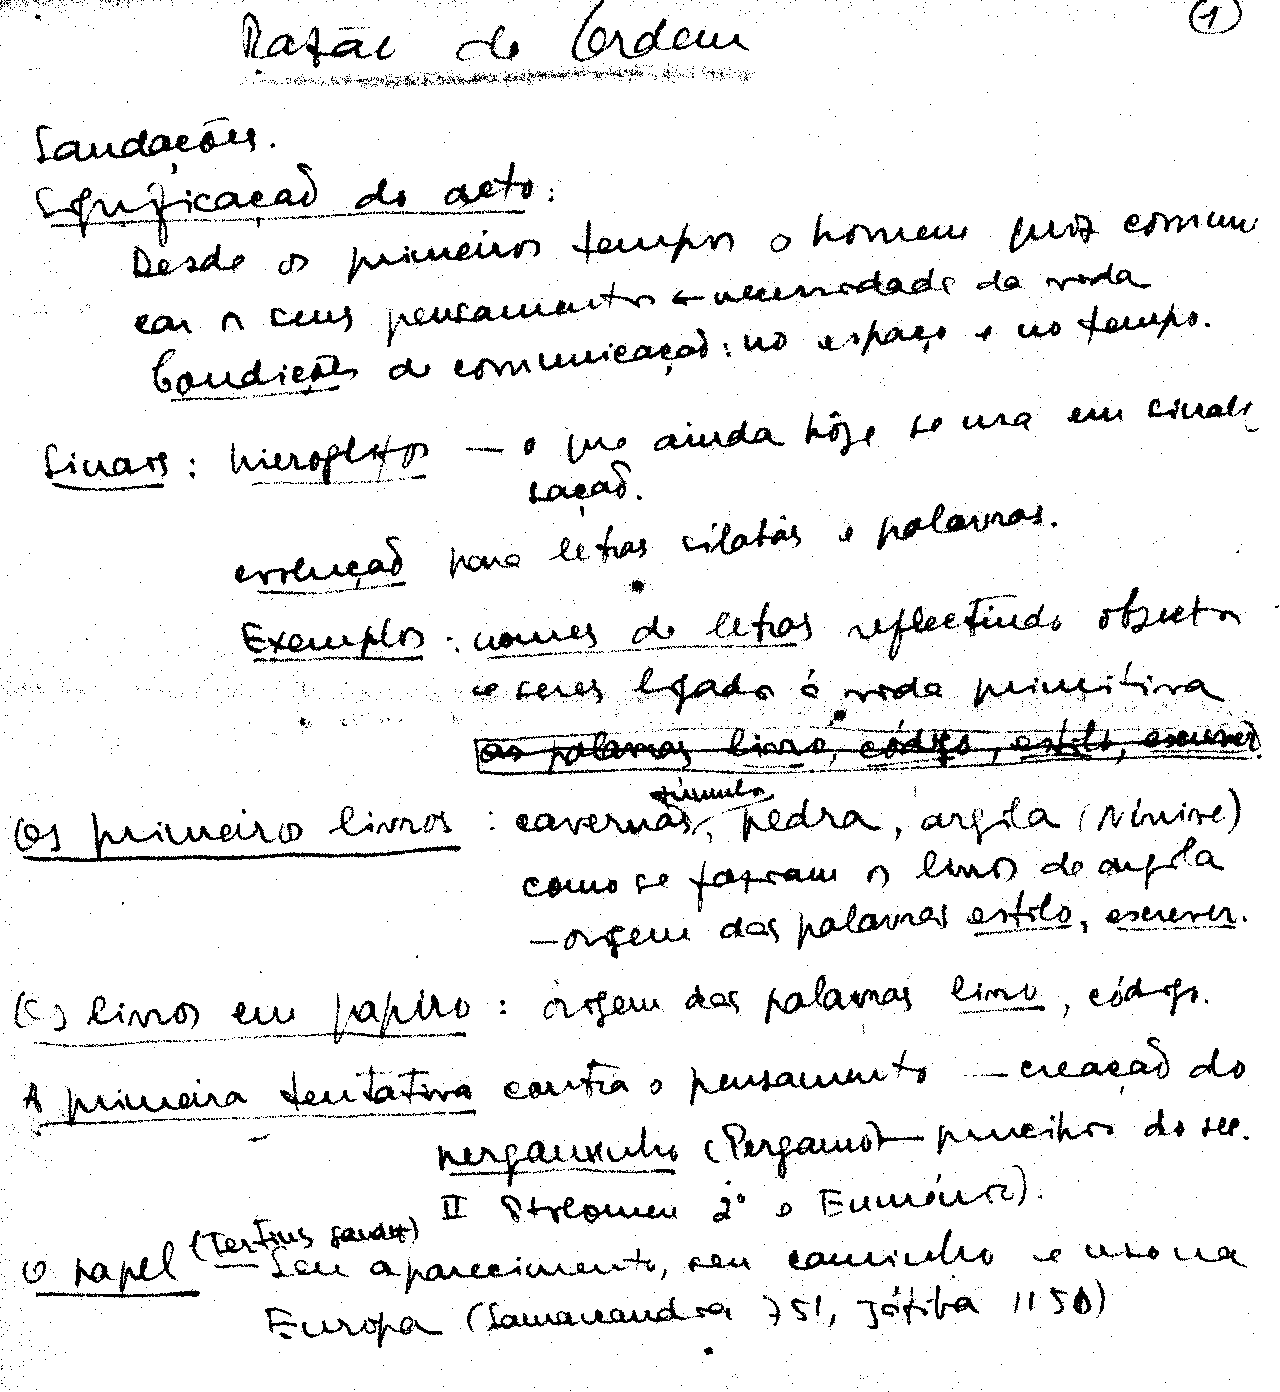 1
Razão de Ordem
Saudações.
Significação do acto:
Desde os primeiros tempos o homem quiz comuni
car os seus pensamentos ← necessidade da vida
Condições de comunicação: no espaço e no tempo.
Sinais: hieroglifos — o que ainda hôje se usa em sinali
sação.
evolução para letras sílabas e palavras.
Exemplos: nomes de letras reflectindo objectos
e seres ligados á vida primitiva
as palavras livro, código, estilo, escrever
Os primeiros livros: cavernas, pedra, argila (Nínive)
como se faziam os livros de argila
— origem das palavras estilo, escrever.
Os livros em papiro: origem das palavras livro, código.
A primeira tentativa contra o pensamento — creação do
pergaminho (Pergamo) — principios do sec.
II Ptolomeu 2º e Euménio).
O papel (Tertius
Seu aparecimento, seu caminho e uso na
Europa (Samarcandra 751, Játiba 1150)